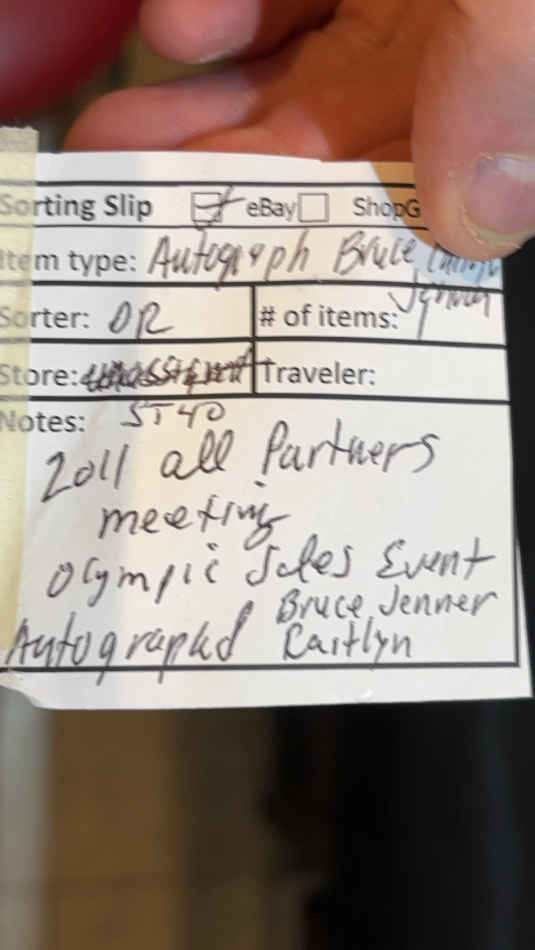 Sorting Slip eBay ShopG
Item type: Autograph Bruce
Jenner
Sorter: DR # of items: 1
Store: Traveler:
Notes: ST40
2011 all Partners
meeting
Olympic Sales Event
Bruce Jenner
Autographed Caitlyn